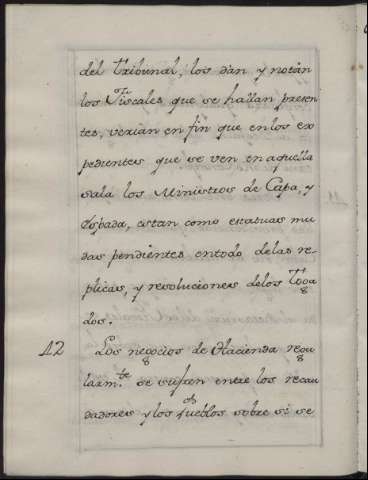 del Tribunal, los dàn y notàn
los Fiscales que se hallan presen
tes, verian en fin que en los ex
pedientes que se ven en aquella
sala los Ministros de Capa, y
Espada, estan como estatuas mu
das pendientes entodo delas re
plicas, y resoluciones delos Toga
dos.
42 Los negocios de Hacienda regu
larm.te se sufren entre los recau
dadores y los Pueblos sobre si se